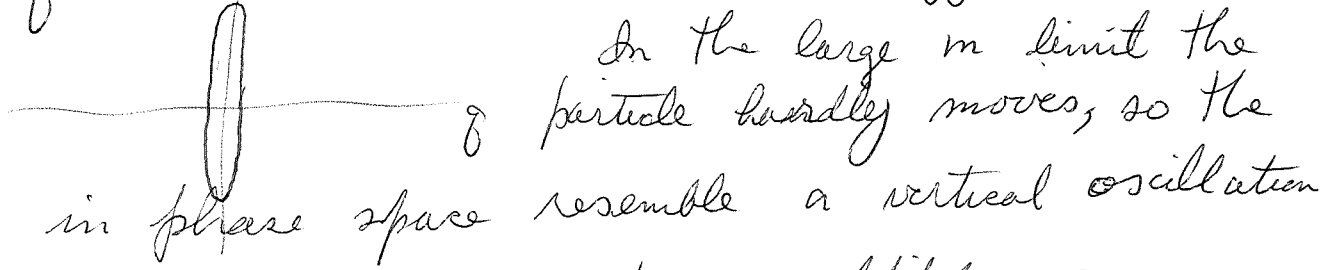 In the large m limit the
q particle hardly moves, so the
in phase space resemble a vertical oscillation